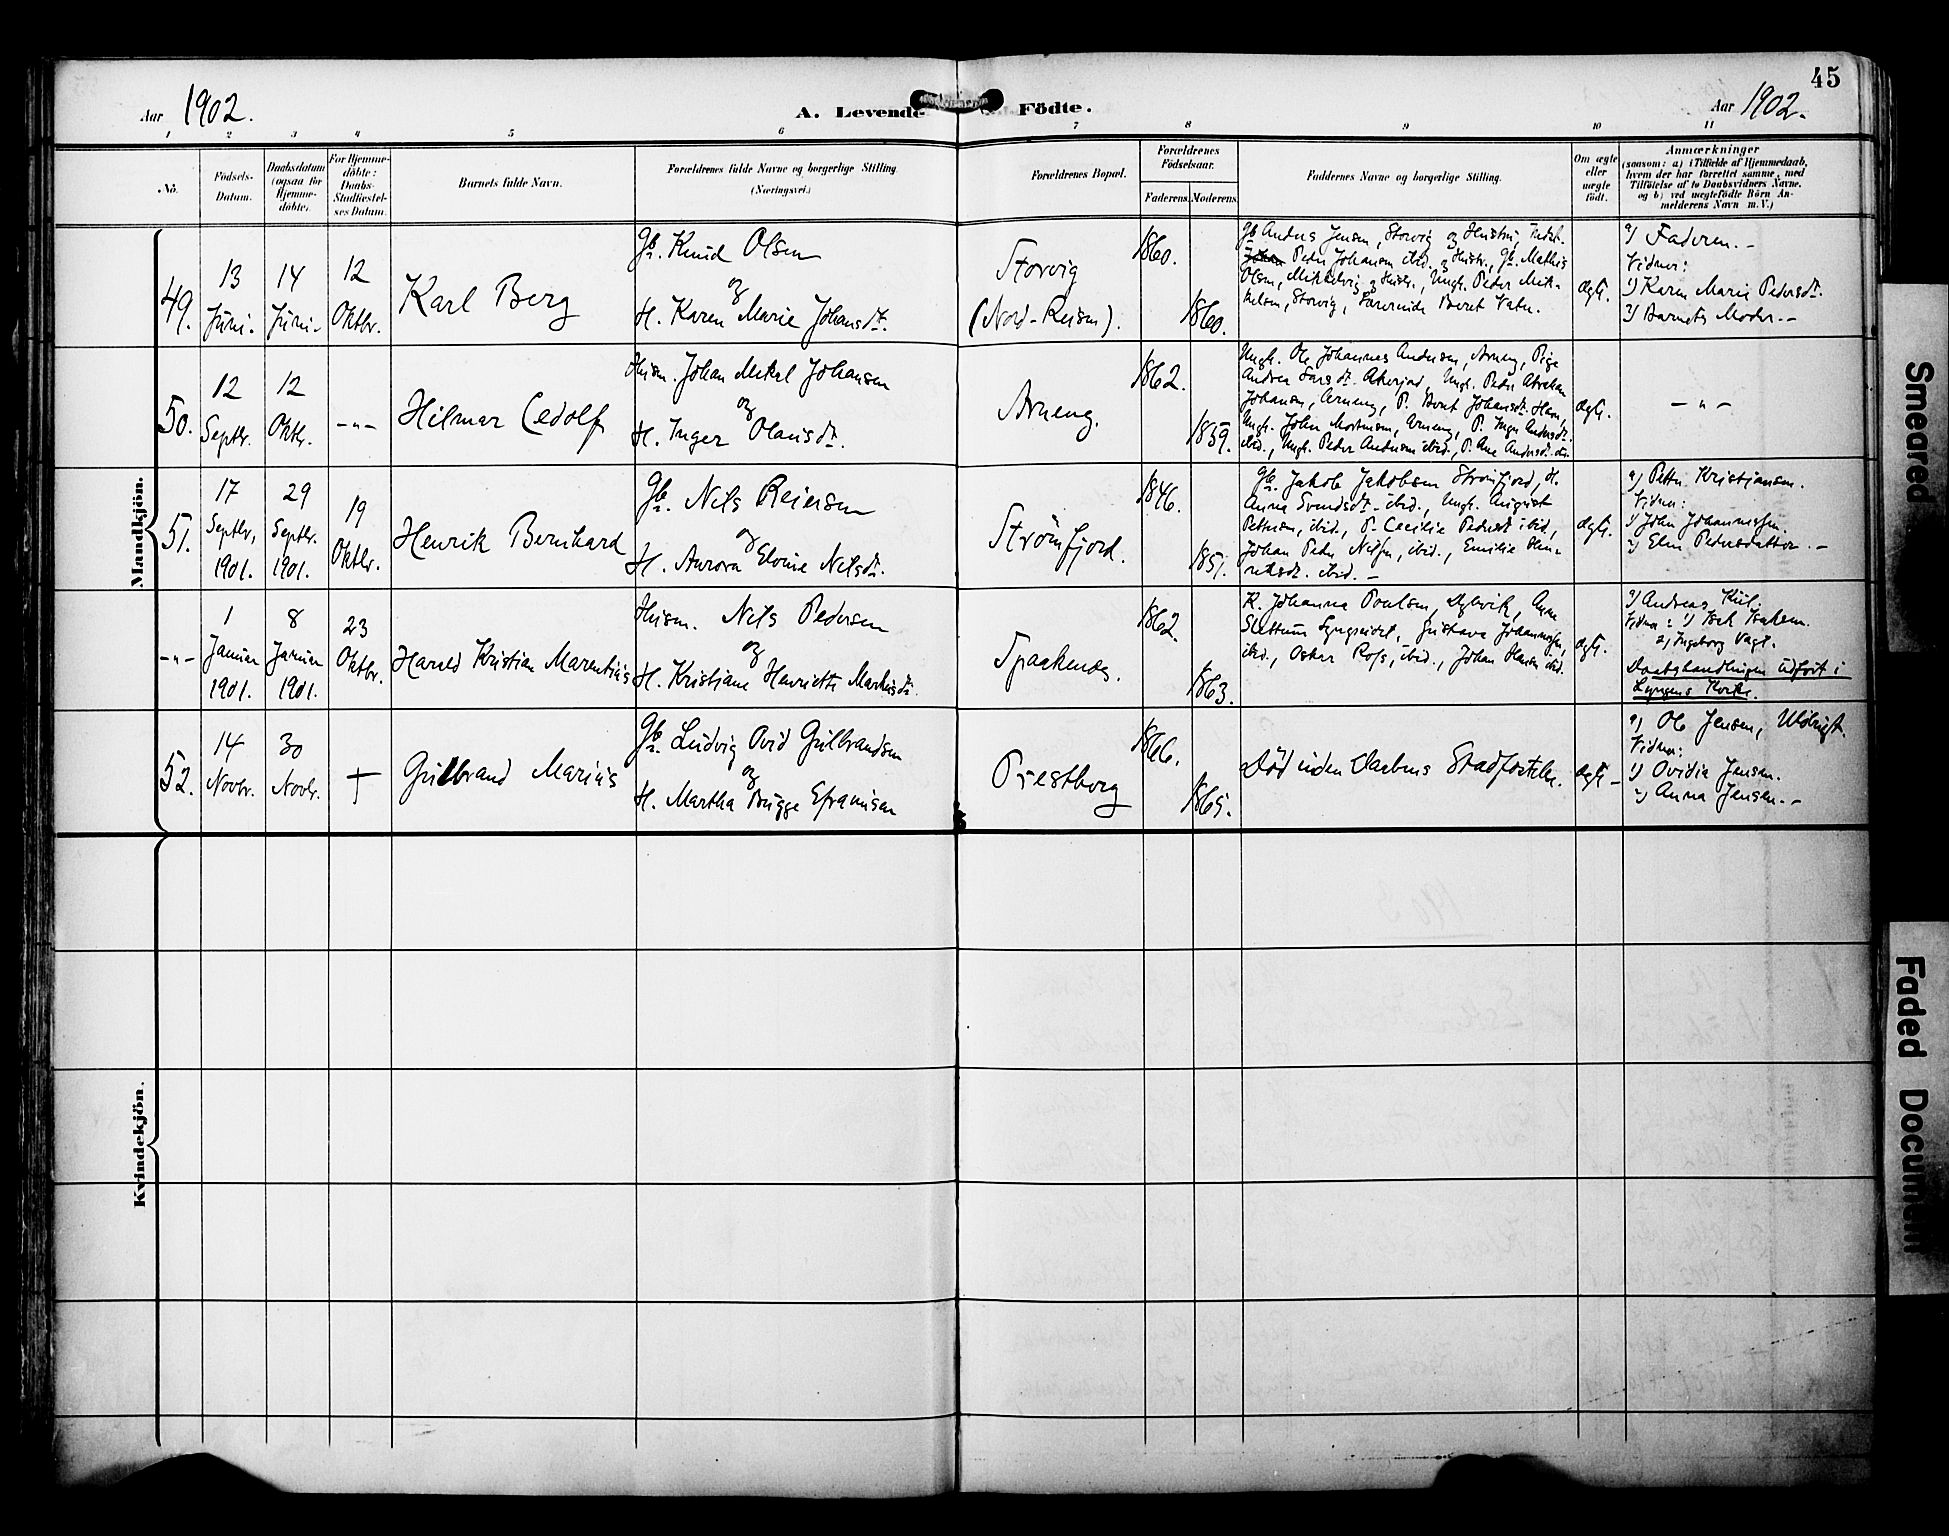 45
Aar 1902.
A. Levende Födte.
Aar 1902.
1 2 3 4 5 6 7 8 9 10 11
No.
Födsels-
Datum.
Daabsdatum
(ogsaa for
Hjemme-
döbte).
For Hjemme-
döbte:
Daabs-
Stadfæstel-
ses Datum.
Barnets fulde Navn.
Forældrenes fulde Navne og borgerlige Stilling
(Næringsvei.)
Forældrenes Bopæl.
Forældrenes
Födselsaar.
Faderens.
Moderens.
Faddernes Navne og borgerlige Stilling.
Om ægte
eller
uægte
födt.
Anmærkninger
(saasom: a) i Tilfælde af Hjemmedaab,
hvem der har forrettet samme, med
Tilföielse af to Daabsvidners Navne.
og b) ved uegtefödte Börn An-
melderens Navn m. V.)
Mandkjön.
49.
13
Juni.
14
Juni.
12
Oktbr.
Karl Berg
Gb. Knud Olsen
og
H. Karen Marie Johansdt.
Storvig
(Nord-Reisen).
1860.
1860.
Gb. Anders Jensen, Storvig og Hustru, Indst.
Peder Johansen ibid. og Hustr., Gb. Mathis
Olsen, Mikkelvig og Hustr., Ungk. Peder Mik-
kelsen, Storvig, Beret
ægt.
a) Faderen. -
Vidner:
1) Karen Marie Pedersdt.
2) Barnets Moder. -
50.
12
Septbr.
12
Oktbr.
-"-
Hilmar Cedolf
Husm. Johan Mekal Johansen
og
H. Inger Olausdt.
Arneng.
1862.
1859.
Ungk. Ole Johannes Andersen, Arneng, Pige
Andrea Larsdt. Ungk. Peder Abraham
Johansen, Arneng, P. Berit Johansdt.
Ungk. John Mortensen, Arneng, P. Inger Andersdt.
ibid., Ungk. Peder Andersen ibid., P. Ane Andersdt. ibid.
ægt.
-"-
51.
17
Septbr.
1901.
29
Septbr.
1901.
19
Oktbr.
Henrik Bernhard
Gb. Nils Reiersen
og
H. Aurora Elonie Nilsdt.
Strømfjord.
1846.
1851.
Gb. Jakob Jakobsen Strømfjord, H.
Anna Svendsdt. ibid., Ungk. August
Pettersen, ibid., P. Cecilie Pedersdt ibid,
Johan Peder Nilsen, ibid., Emilie Hen-
riksdt. ibid. -
ægt.
a) Petter Kristiansen.
Vidner:
1) John Johannessen.
2) Elen Pedersdatter. -
-"-
1
Januar
1901.
8
Januar
1901.
23
Oktbr.
Harald Kristian Marentius
Husm. Nils Pedersen
og
H. Kristiane Henriette Markusdt.
Spaakenes.
1862.
1863.
K. Johanna Poulsen, Dybvik, Anna
Slettum Lyngseidet, Gustava Johannessen,
ibid., Oskar Ross, ibid., Johan Hansen ibid.
ægt.
a) Andreas Kiil.
Vidner: 1) Isak Isaksen.
2) Ingeborg Vagt.
Daabshandlingen udført i
Lyngens Kirke.
52.
14
Novbr.
30
Novbr.
+
Gulbrand Marius
Gb. Ludvig Ovid Gulbrandsen
og
H. Martha Brügge Efraimsen
Prestberg
1866.
1865.
Død uden Daabens Stadfæstelse.
ægt. -
a) Ole Jensen,
Vidner:
1) Ovidia Jensen.
2) Anna Jensen. -
Kvindekjön.
Smeared
Faded Document